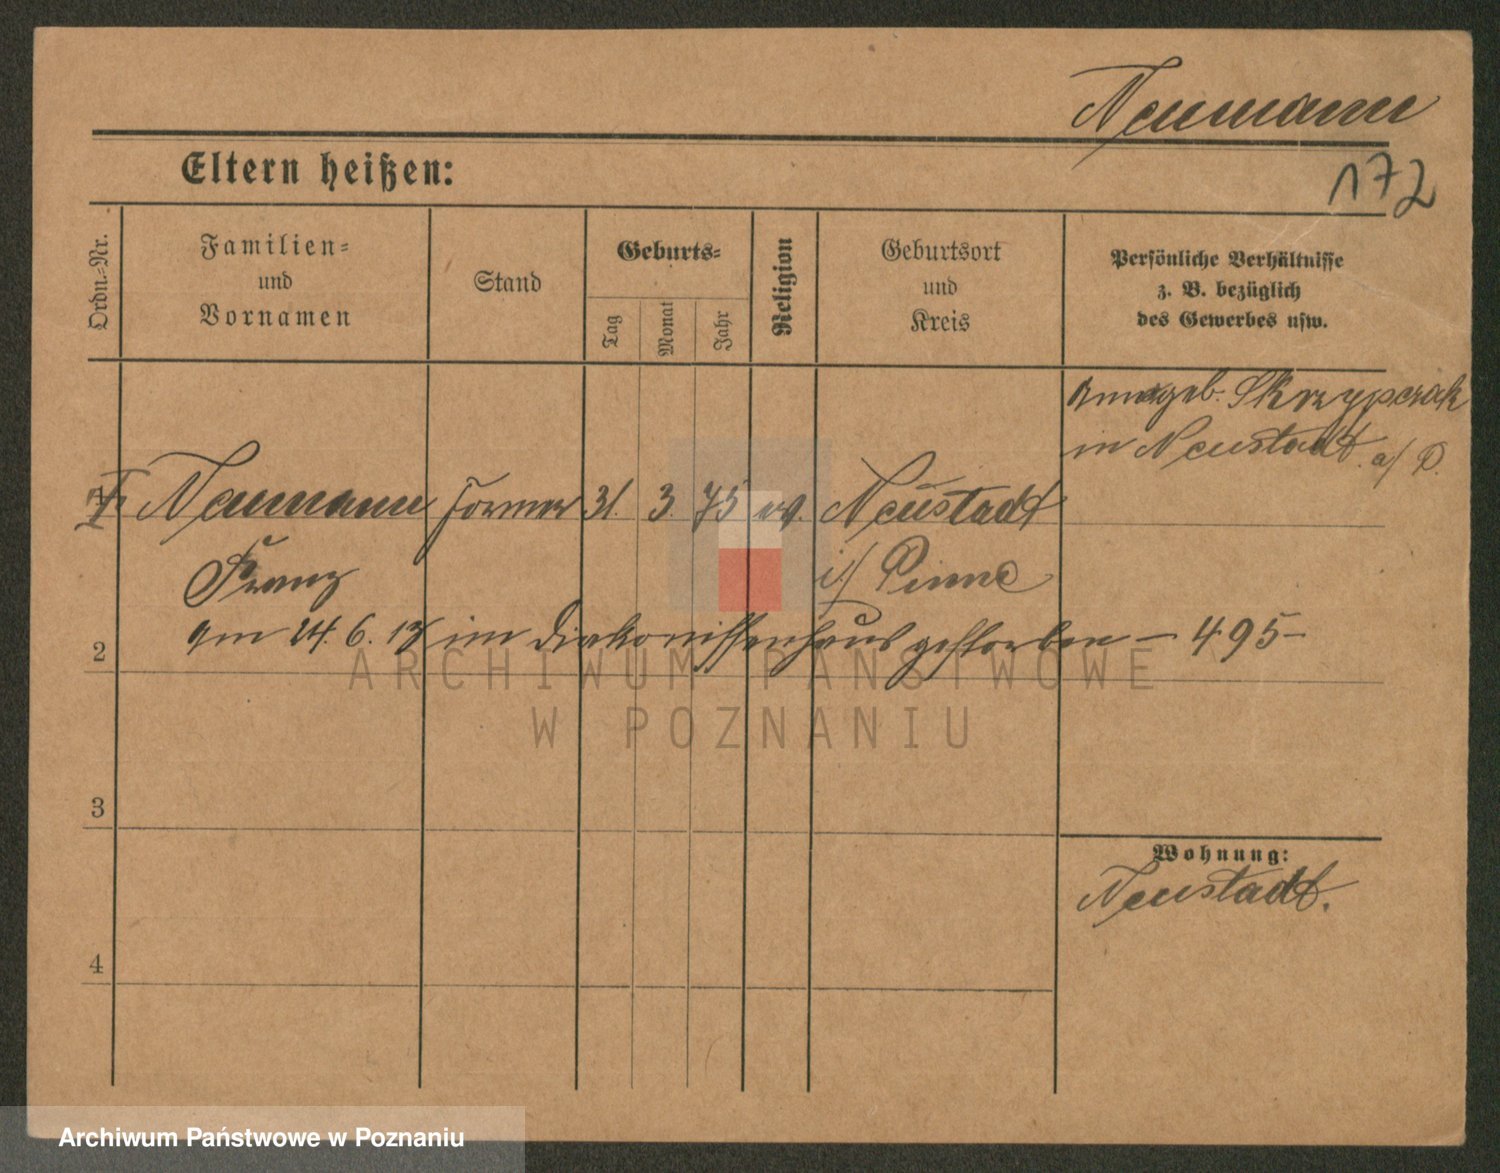 Neumann
172
Eltern heißen:
Ordn.-Nr.
Familien-
und
Vornamen
Stand
Geburts-
Tag
Monat
Jahr
Religion
Geburtsort
und
Kreis
Persönliche Verhältnisse
z. B. bezüglich
des Gewerbes usw.
geb. Skrzypczak
in Neustadt a/
Neumann Former 31. 3. 75 ev. Neustadt
Franz
Pinne
2 am 24. 6. im Diakonissenhaus gestorben – 495 –
3
Wohnung:
Neustadt.
4
ARCHIWUM PAŃSTWOWE
W POZNANIU
Archiwum Państwowe w Poznaniu